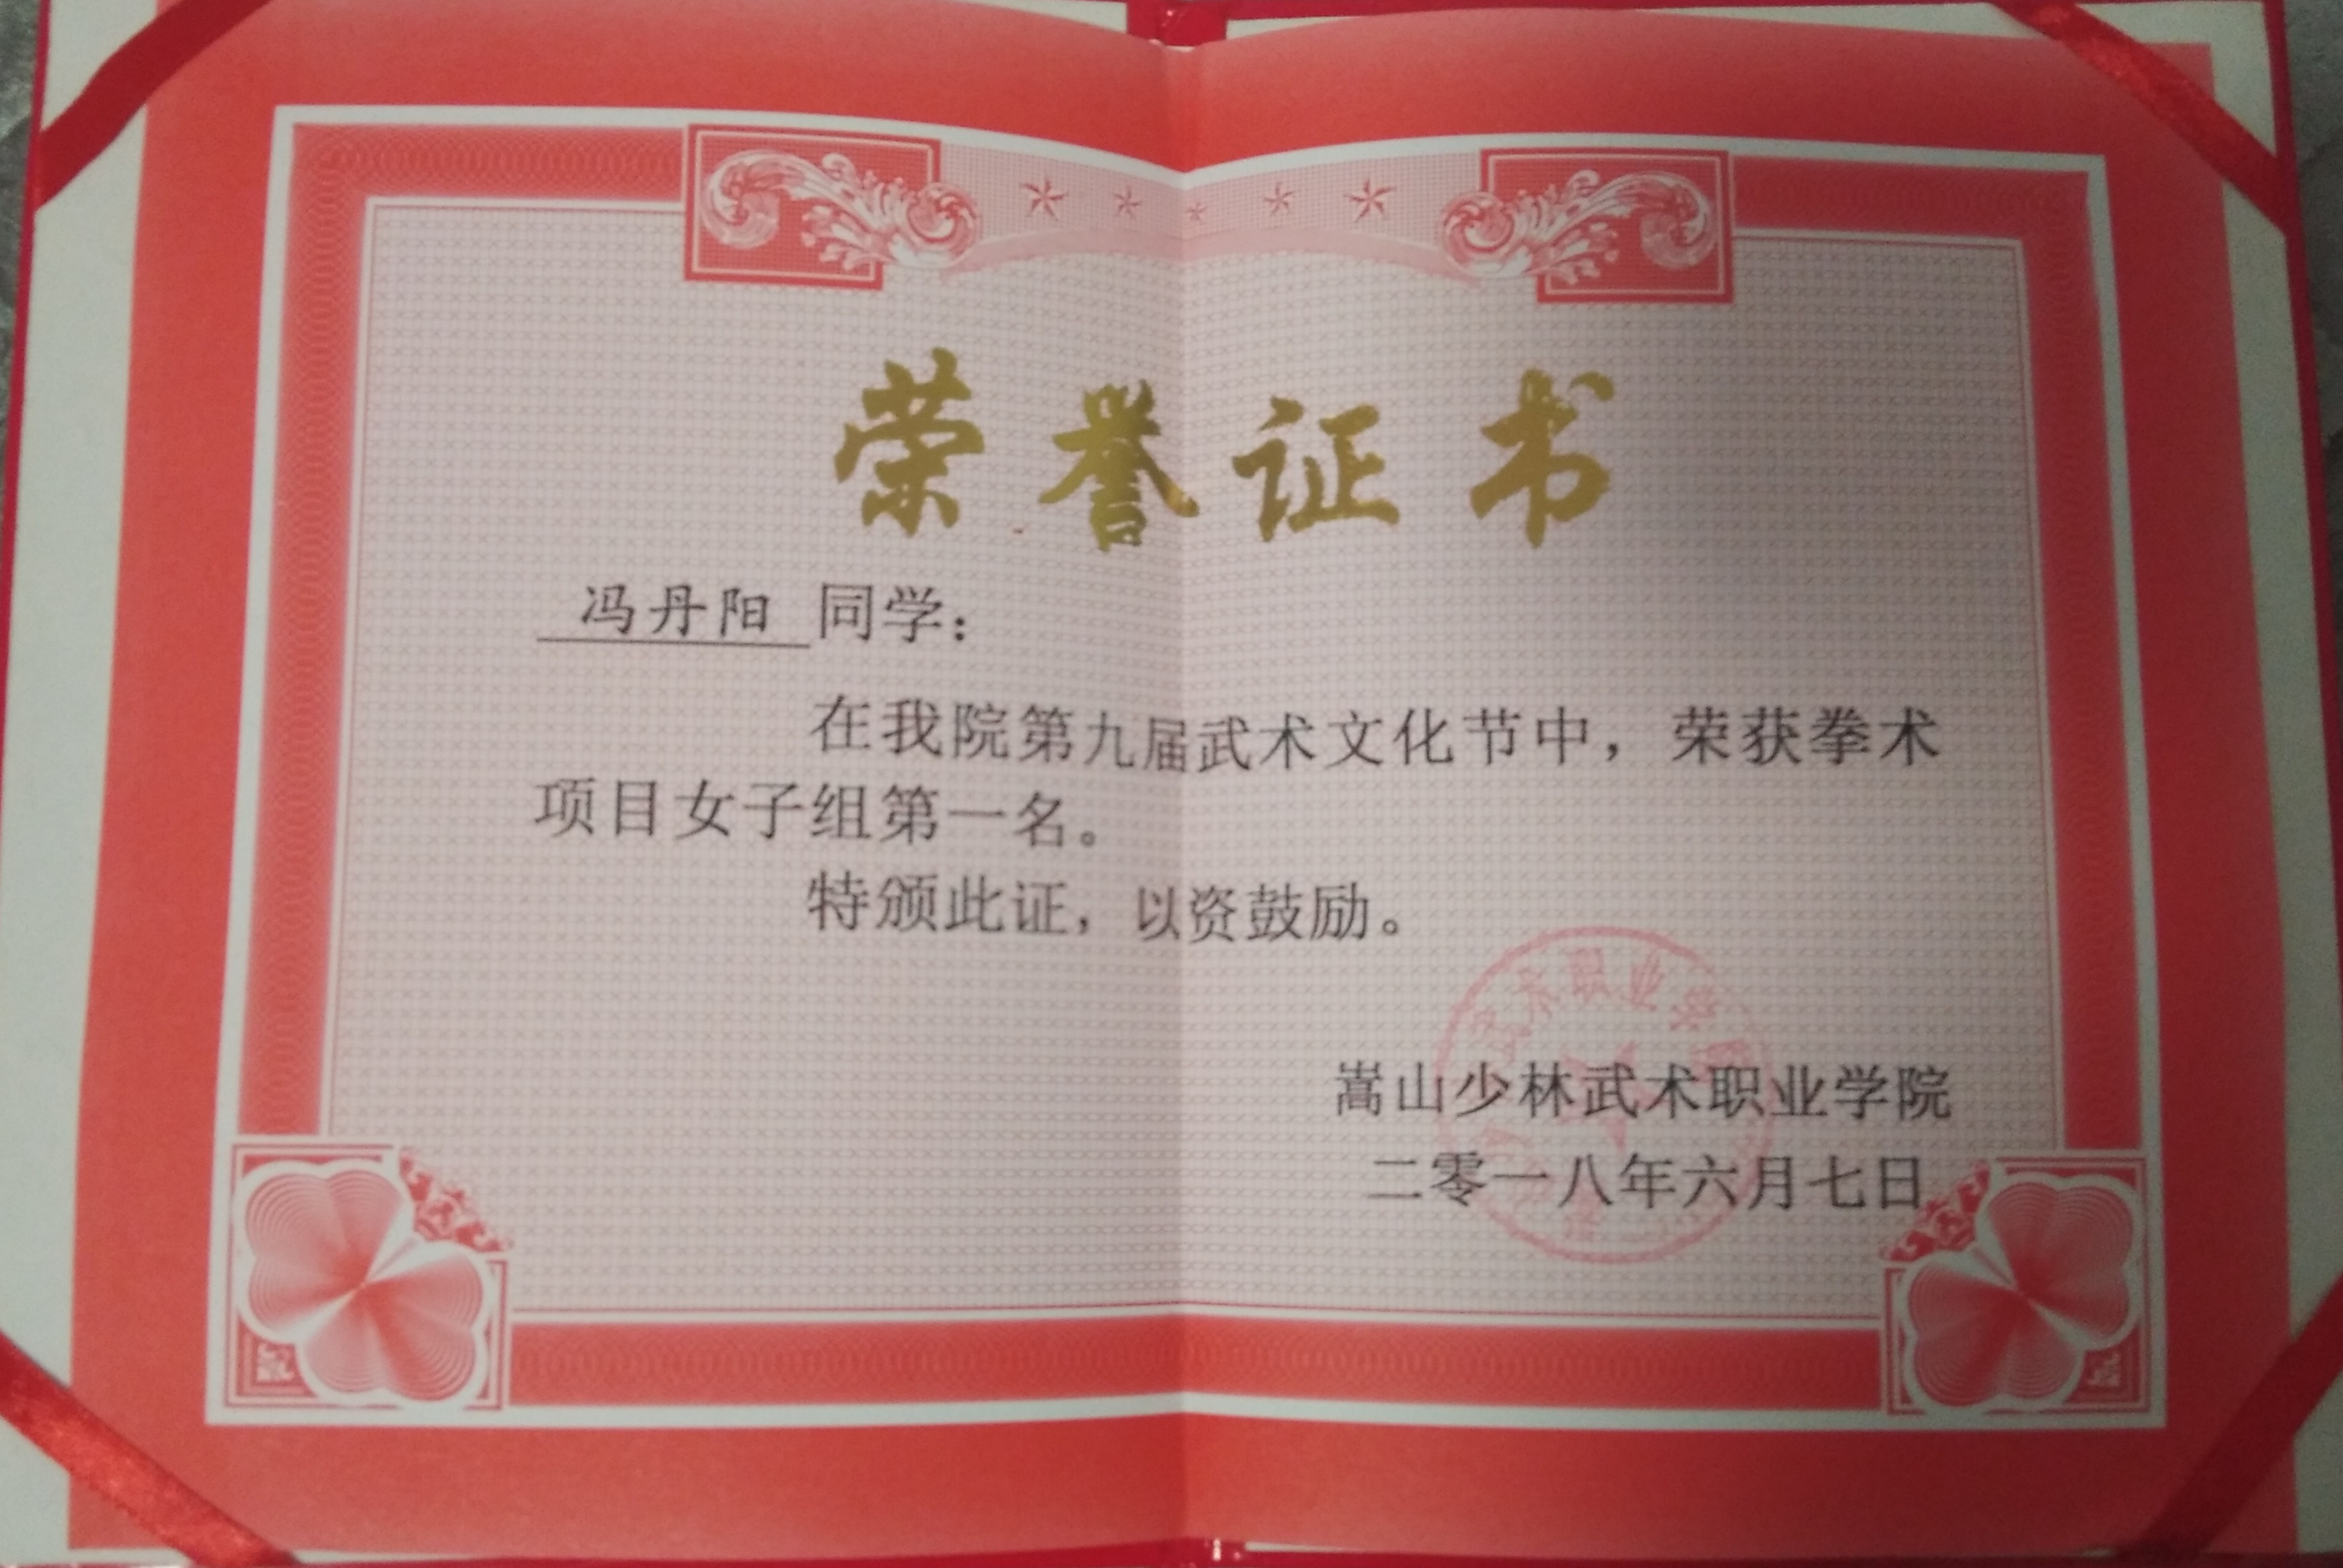 荣誉证书
冯丹阳 同学：
在我院第九届武术文化节中，荣获拳术
项目女子组第一名。
特颁此证，以资鼓励。
武术职业学院
嵩山少林武术职业学院
二零一八年六月七日